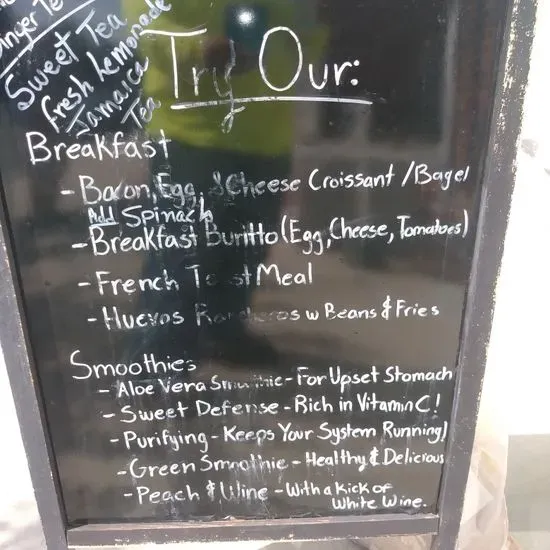 Sweet Tea
Fresh Lemonade
Jamaica
Tea
Try Our:
Breakfast
- Bacon, Egg, & Cheese Croissant / Bagel
Add Spinach
- Breakfast Buritto (Egg, Cheese, Tomatoes)
- French Toast Meal
- Huevos Rancheros w Beans & Fries
Smoothies
- Aloe Vera Smoothie - For Upset Stomach
- Sweet Defense - Rich in Vitamin C!
- Purifying - Keeps Your System Running!
- Green Smoothie - Healthy & Delicious
- Peach & Wine - With a Kick of
White Wine.